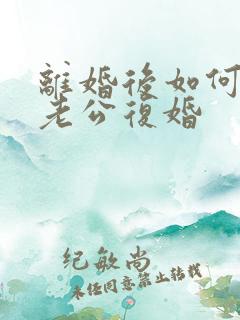 離婚後如何
老公復婚
紀敏尚
未经同意禁止转载